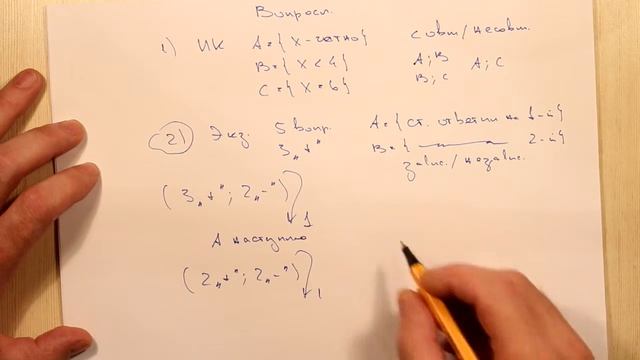 Вопросы.
1) ИК A={X-четно} совм/несовм.
B={X<4} A;B A;C
C={X=6} B;C
2) Экз. 5 вопр. A={ст. ответил на 1-й}
3„+" B={ 2-й}
завис./независ.
(3„+"; 2„-") 1
A наступило
(2„+"; 2„-") 1